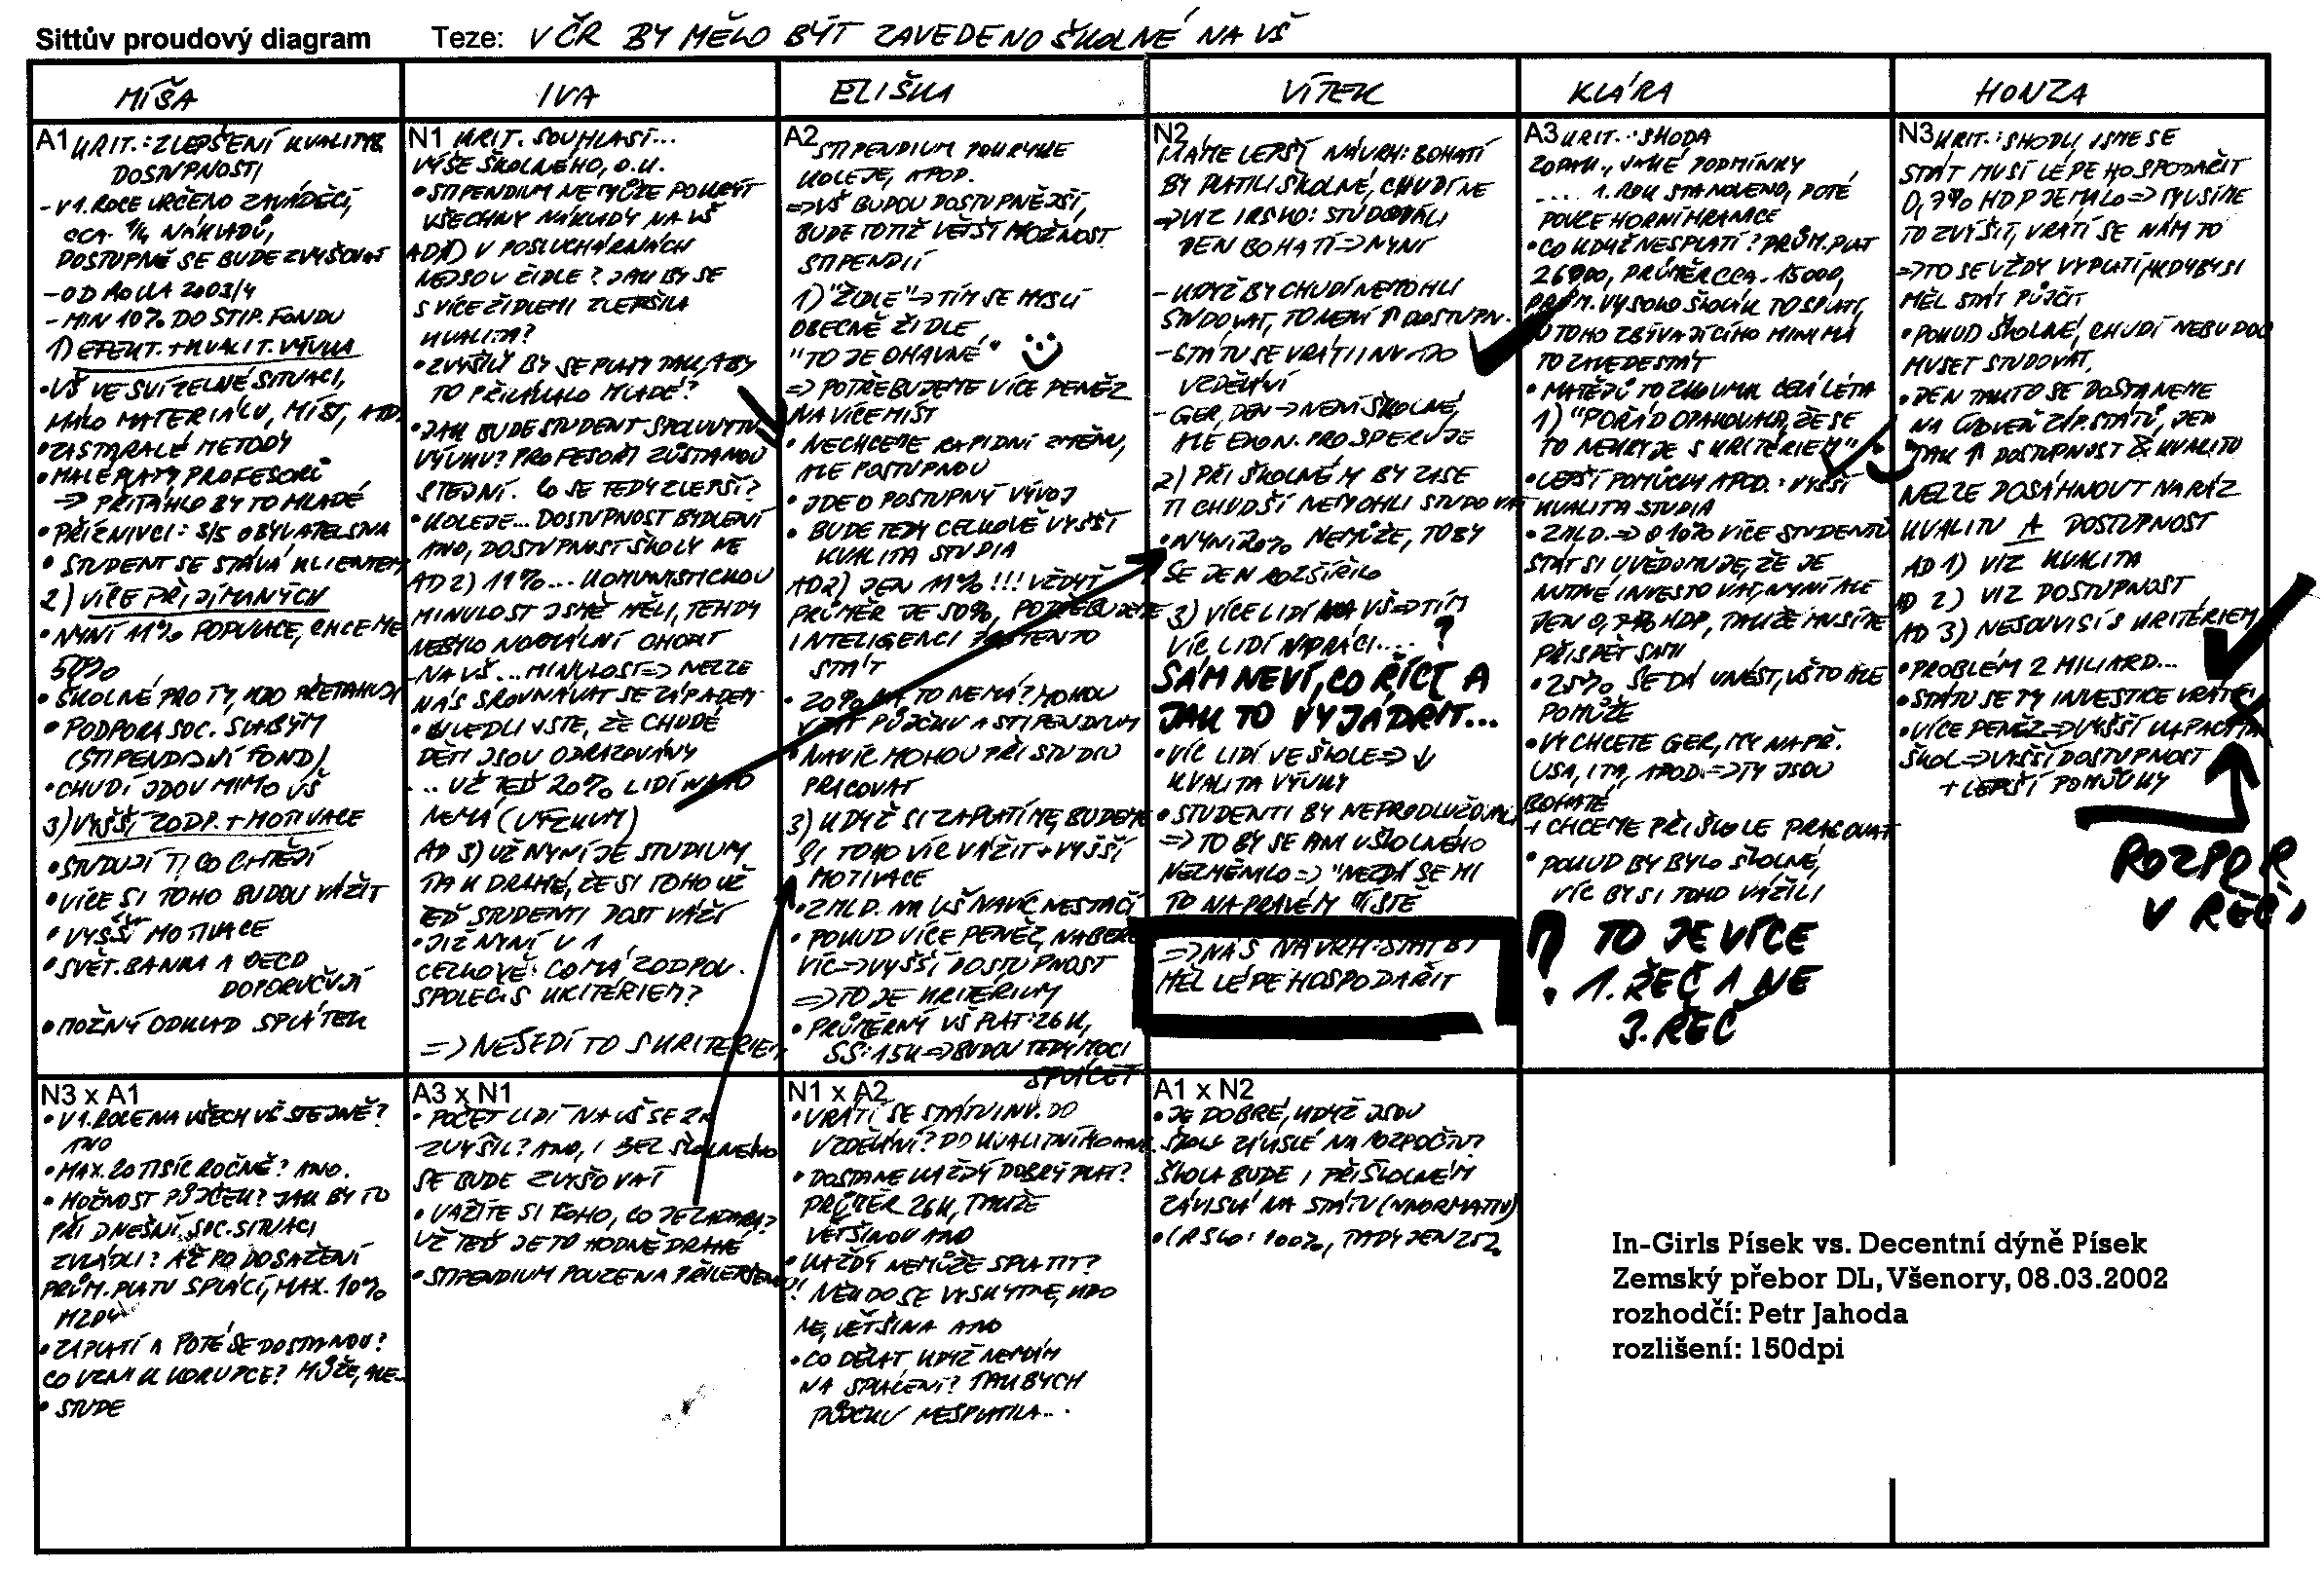 Sittův proudový diagram Teze: V ČR BY MĚLO BÝT ZAVEDENO ŠKOLNÉ NA VŠ
MÍŠA
A1 KRIT.: ZLEPŠENÍ KVALITY &
DOSTUPNOSTI
- V 1. ROCE URČENO ZAVÁDĚCÍ,
CCA. 1/4 NÁKLADŮ,
DOSTUPNĚ SE BUDE ZVYŠOVAT
- OD ROKU 2003/4
- MIN 10% DO STIP. FONDU
1) EFEKT. + KVALIT. VÝUKA
• VŠ VE SVÍZELNÉ SITUACI,
MÁLO MATERIÁLU, MÍST, ATD.
• ZASTARALÉ METODY
• MALÉ PLATY PROFESORŮ
=> PŘITÁHLO BY TO MLADÉ
• PŘÍZNIVCI: 3/5 OBYVATELSTVA
• STUDENT SE STÁVÁ KLIENTEM
2) VÍCE PŘIJÍMANÝCH
• NYNÍ 11% POPULACE, CHCEME
50%
• ŠKOLNÉ PRO TY, KDO PŘETAHUJÍ
• PODPORA SOC. SLABÝM
(STIPENDIJNÍ FOND)
• CHUDÍ JDOU MIMO VŠ
3) VYŠŠÍ ZODP. + MOTIVACE
• STUDUJÍ TI CO CHTĚJÍ
• VÍCE SI TOHO BUDOU VÁŽIT
• VYŠŠÍ MOTIVACE
• SVĚT. BANKA A OECD
DOPORUČUJÍ
• MOŽNÝ ODKLAD SPLÁTEK
IVA
N1 KRIT. SOUHLASÍ...
VÝŠE ŠKOLNÉHO, O.K.
• STIPENDIUM NEMŮŽE POKRÝT
VŠECHNY NÁKLADY NA VŠ
AD1) V POSLUCHÁRNÁCH
NEJSOU ŽIDLE? JAK BY SE
S VÍCE ŽIDLEMI ZLEPŠILA
KVALITA?
• ZVÝŠILY BY SE PLATY TAK, ABY
TO PŘILÁKALO MLADÉ?
• JAK BUDE STUDENT SPOLUVYTV.
VÝUKU? PROFESOŘI ZŮSTANOU
STEJNÍ. CO SE TEDY ZLEPŠÍ?
• KOLEJE... DOSTUPNOST BYDLENÍ
ANO, DOSTUPNOST ŠKOLY NE
AD 2) 11%... KOMUNISTICKOU
MINULOST JSME MĚLI, TEHDY
NEBYLO NORMÁLNÍ CHODIT
NA VŠ... MINULOST => NELZE
NÁS SROVNÁVAT SE ZÁPADEM
• ŘEKLI JSTE, ŽE CHUDÉ
DĚTI JSOU ODRAZOVÁNY
... UŽ TEĎ 20% LIDÍ NA TO
NEMÁ (VÝZKUM)
AD 3) UŽ NYNÍ JE STUDIUM
TAK DRAHÉ, ŽE SI TOHO UŽ
TEĎ STUDENTI DOST VÁŽÍ
• JIŽ NYNÍ V 1
CELKOVĚ: CO MÁ ZODPOV.
SPOLEČ. S KRITÉRIEM?
=> NESEDÍ TO S KRITERIEM
ELIŠKA
A2 STIPENDIUM POKRYJE
KOLEJE, APOD.
=> VŠ BUDOU DOSTUPNĚJŠÍ,
BUDE TOTIŽ VĚTŠÍ MOŽNOST
STIPENDIÍ
1) "ŽIDLE" -> TÍM SE MYSLÍ
OBECNĚ ŽIDLE,
"TO JE OHAVNÉ"
=> POTŘEBUJEME VÍCE PENĚZ
NA VÍCE MÍST
• NECHCEME RAPIDNÍ ZMĚNU,
ALE POSTUPNOU
• JDE O POSTUPNÝ VÝVOJ
• BUDE TEDY CELKOVĚ VYŠŠÍ
KVALITA STUDIA
AD2) JEN 11%!!! VŽDYŤ
PRŮMĚR JE 50%, POTŘEBUJEME
INTELIGENCI PRO TENTO
STÁT
• 20% NA TO NEMÁ? MOHOU
VZÍT PŮJČKU A STIPENDIUM
• NAVÍC MOHOU PŘI STUDIU
PRACOVAT
3) KDYŽ SI ZAPLATÍME, BUDEME
SI TOHO VÍC VÁŽIT + VYŠŠÍ
MOTIVACE
• 2MLD. NA VŠ NAVÍC NESTAČÍ
• POKUD VÍCE PENĚZ, NABEROU
VÍC => VYŠŠÍ DOSTUPNOST
=> TO JE KRITÉRIUM
• PRŮMĚRNÝ VŠ PLAT: 26K,
SŠ: 15K => BUDOU TEDY MOCI
SPLÁCET
VÍTEK
N2 MÁME LEPŠÍ NÁVRH: BOHATÍ
BY PLATILI ŠKOLNÉ, CHUDÍ NE
=> VIZ IRSKO: STUDOVALI
JEN BOHATÍ => NYNÍ
- KDYŽ BY CHUDÍ NEMOHLI
STUDOVAT, TO NENÍ ↑ DOSTUPN.
- STÁTU SE VRÁTÍ INV. DO
VZDĚLÁNÍ
- GER, DEN -> NENÍ ŠKOLNÉ,
ALE EKON. PROSPERUJE
2) PŘI ŠKOLNÉM BY ZASE
TI CHUDŠÍ NEMOHLI STUDOVAT
• NYNÍ 20% NEMŮŽE, TO BY
SE JEN ROZŠÍŘILO
3) VÍCE LIDÍ NA VŠ => TÍM
VÍC LIDÍ NA PRÁCI....?
SÁM NEVÍ, CO ŘÍCT A
JAK TO VYJÁDŘIT...
• VÍC LIDÍ VE ŠKOLE => ↓
KVALITA VÝUKY
• STUDENTI BY NEPRODLUŽOVALI
=> TO BY SE ANI U ŠKOLNÉHO
NEZMĚNILO => "NEZDÁ SE MI
TO NA PRAVÉM MÍSTĚ
=> NÁŠ NÁVRH: STÁT BY
MĚL LÉPE HOSPODAŘIT
KLÁRA
A3 KRIT.: SHODA
ZOPAK., JAKÉ PODMÍNKY
.... 1. ROK STANOVENO, POTÉ
POUZE HORNÍ HRANICE
• CO KDYŽ NESPLATÍ? PRŮM. PLAT
26000, PRŮMĚR CCA. 15000,
PRŮM. VYSOKOŠKOLÁK TO SPLATÍ,
U TOHO ZBÝVAJÍCÍHO MINIMA
TO ZAVEDE STÁT
• MATĚJŮ TO ZKOUMAL CELÁ LÉTA
1) "POŘÁD OPAKOVALA, ŽE SE
TO NEKRYJE S KRITÉRIEM"
• LEPŠÍ POMŮCKY APOD.: VYŠŠÍ
KVALITA STUDIA
• 2MLD. => O 10% VÍCE STUDENTŮ
STÁT SI UVĚDOMUJE, ŽE JE
NUTNÉ INVESTOVAT, NYNÍ ALE
JEN 0,7% HDP, TAKŽE MUSÍME
PŘISPĚT SAMI
• 25% SE DÁ UNÉST, VŠ TO ALE
POMŮŽE
• VY CHCETE GER, MY NAPŘ.
USA, ITA, APOD. => TY JSOU
BOHATÉ
+ CHCEME PŘI ŠKOLE PRACOVAT
• POKUD BY BYLO ŠKOLNÉ,
VÍC BY SI TOHO VÁŽILI
! TO JE VÍCE
1. ŘEČ A NE
3. ŘEČ
HONZA
N3 KRIT.: SHODLI JSME SE
STÁT MUSÍ LÉPE HOSPODAŘIT
0,7% HDP JE MÁLO => MUSÍME
TO ZVÝŠIT, VRÁTÍ SE NÁM TO
=> TO SE VŽDY VYPLATÍ, I KDYBY SI
MĚL STÁT PŮJČIT
• POKUD ŠKOLNÉ, CHUDÍ NEBUDOU
MUSET STUDOVAT.
• JEN TAKTO SE DOSTANEME
NA ÚROVEŇ ZÁP. STÁTŮ, JEN
TAK ↑ DOSTUPNOST & KVALITO
NELZE DOSÁHNOUT NARÁZ
KVALITU A DOSTUPNOST
AD 1) VIZ KVALITA
AD 2) VIZ DOSTUPNOST
AD 3) NESOUVISÍ S KRITÉRIEM
• PROBLÉM 2 MILIARD...
• STÁTU SE TY INVESTICE VRÁTÍ
• VÍCE PENĚZ => VYŠŠÍ KAPACITA
ŠKOL => VYŠŠÍ DOSTUPNOST
+ LEPŠÍ POMŮCKY
ROZPOR
V ŘEČI
N3 x A1
• V 1. ROCE NA VŠECH VŠ STEJNĚ?
ANO
• MAX. 20 TISÍC ROČNĚ? ANO.
• MOŽNOST PŮJČEK? JAK BY TO
PŘI DNEŠNÍ SOC. SITUACI
ZVLÁDLI? AŽ PO DOSAŽENÍ
PRŮM. PLATU SPLÁCÍ, MAX. 10%
MZDY
• ZAPLATÍ A POTÉ SE DOSTANOU?
CO VZNIK KORUPCE? MŮŽE, ALE...
• STUDE
A3 x N1
• POČET LIDÍ NA VŠ SE
ZVÝŠIL? ANO, I BEZ ŠKOLNÉHO
SE BUDE ZVYŠOVAT
• VÁŽÍTE SI TOHO, CO JE ZADARMO?
UŽ TEĎ JE TO HODNĚ DRAHÉ
• STIPENDIUM POUZE NA PŘILEPŠENOU?!
N1 x A2
• VRÁTÍ SE STÁTU INV. DO
VZDĚLÁNÍ? DO KVALITNÍHO ANO.
• DOSTANE KAŽDÝ DOBRÝ PLAT?
PRŮMĚR 26K, TAKŽE
VĚTŠINOU ANO
• KAŽDÝ NEMŮŽE SPLATIT?
NĚKDO SE VYSKYTNE, KDO
NE, VĚTŠINA ANO
• CO DĚLAT, KDYŽ NEMÁM
NA SPLÁCENÍ? TAK BYCH
PŮJČKU NESPLATILA...
A1 x N2
• JE DOBRÉ, KDYŽ JSOU
ŠKOLY ZÁVISLÉ NA ROZPOČTU?
ŠKOLA BUDE I PŘI ŠKOLNÉM
ZÁVISLÁ NA STÁTU (NORMATIV)
• IRSKO: 100%, TADY JEN 25%
In-Girls Písek vs. Decentní dýně Písek
Zemský přebor DL, Všenory, 08.03.2002
rozhodčí: Petr Jahoda
rozlišení: 150dpi